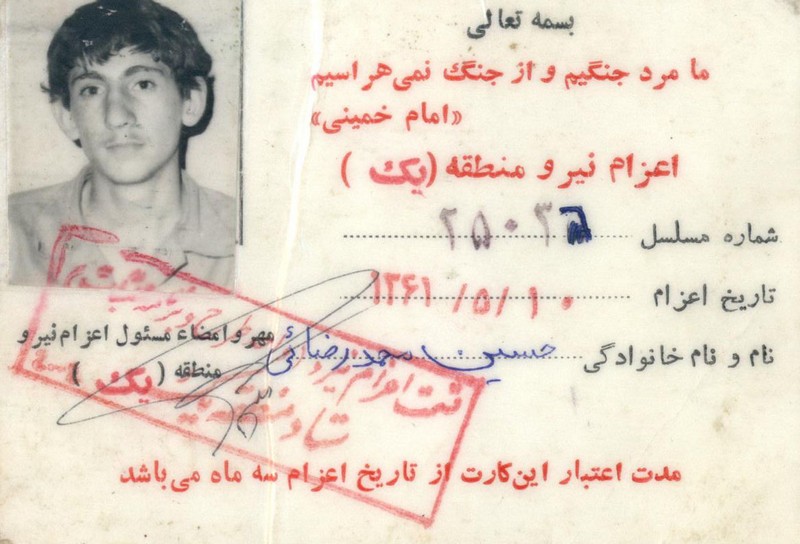 بسمه تعالی
ما مرد جنگیم و از جنگ نمی هراسیم
«امام خمینی»
اعزام نیرو منطقه (یک)
شماره مسلسل ۲۵۰۳
تاریخ اعزام ۱۳۶۱/۵/۱۰
نام و نام خانوادگی حسین محمدرضائی
مهر و امضاء مسئول اعزام نیرو
منطقه (یک)
مدت اعتبار این کارت از تاریخ اعزام سه ماه می باشد